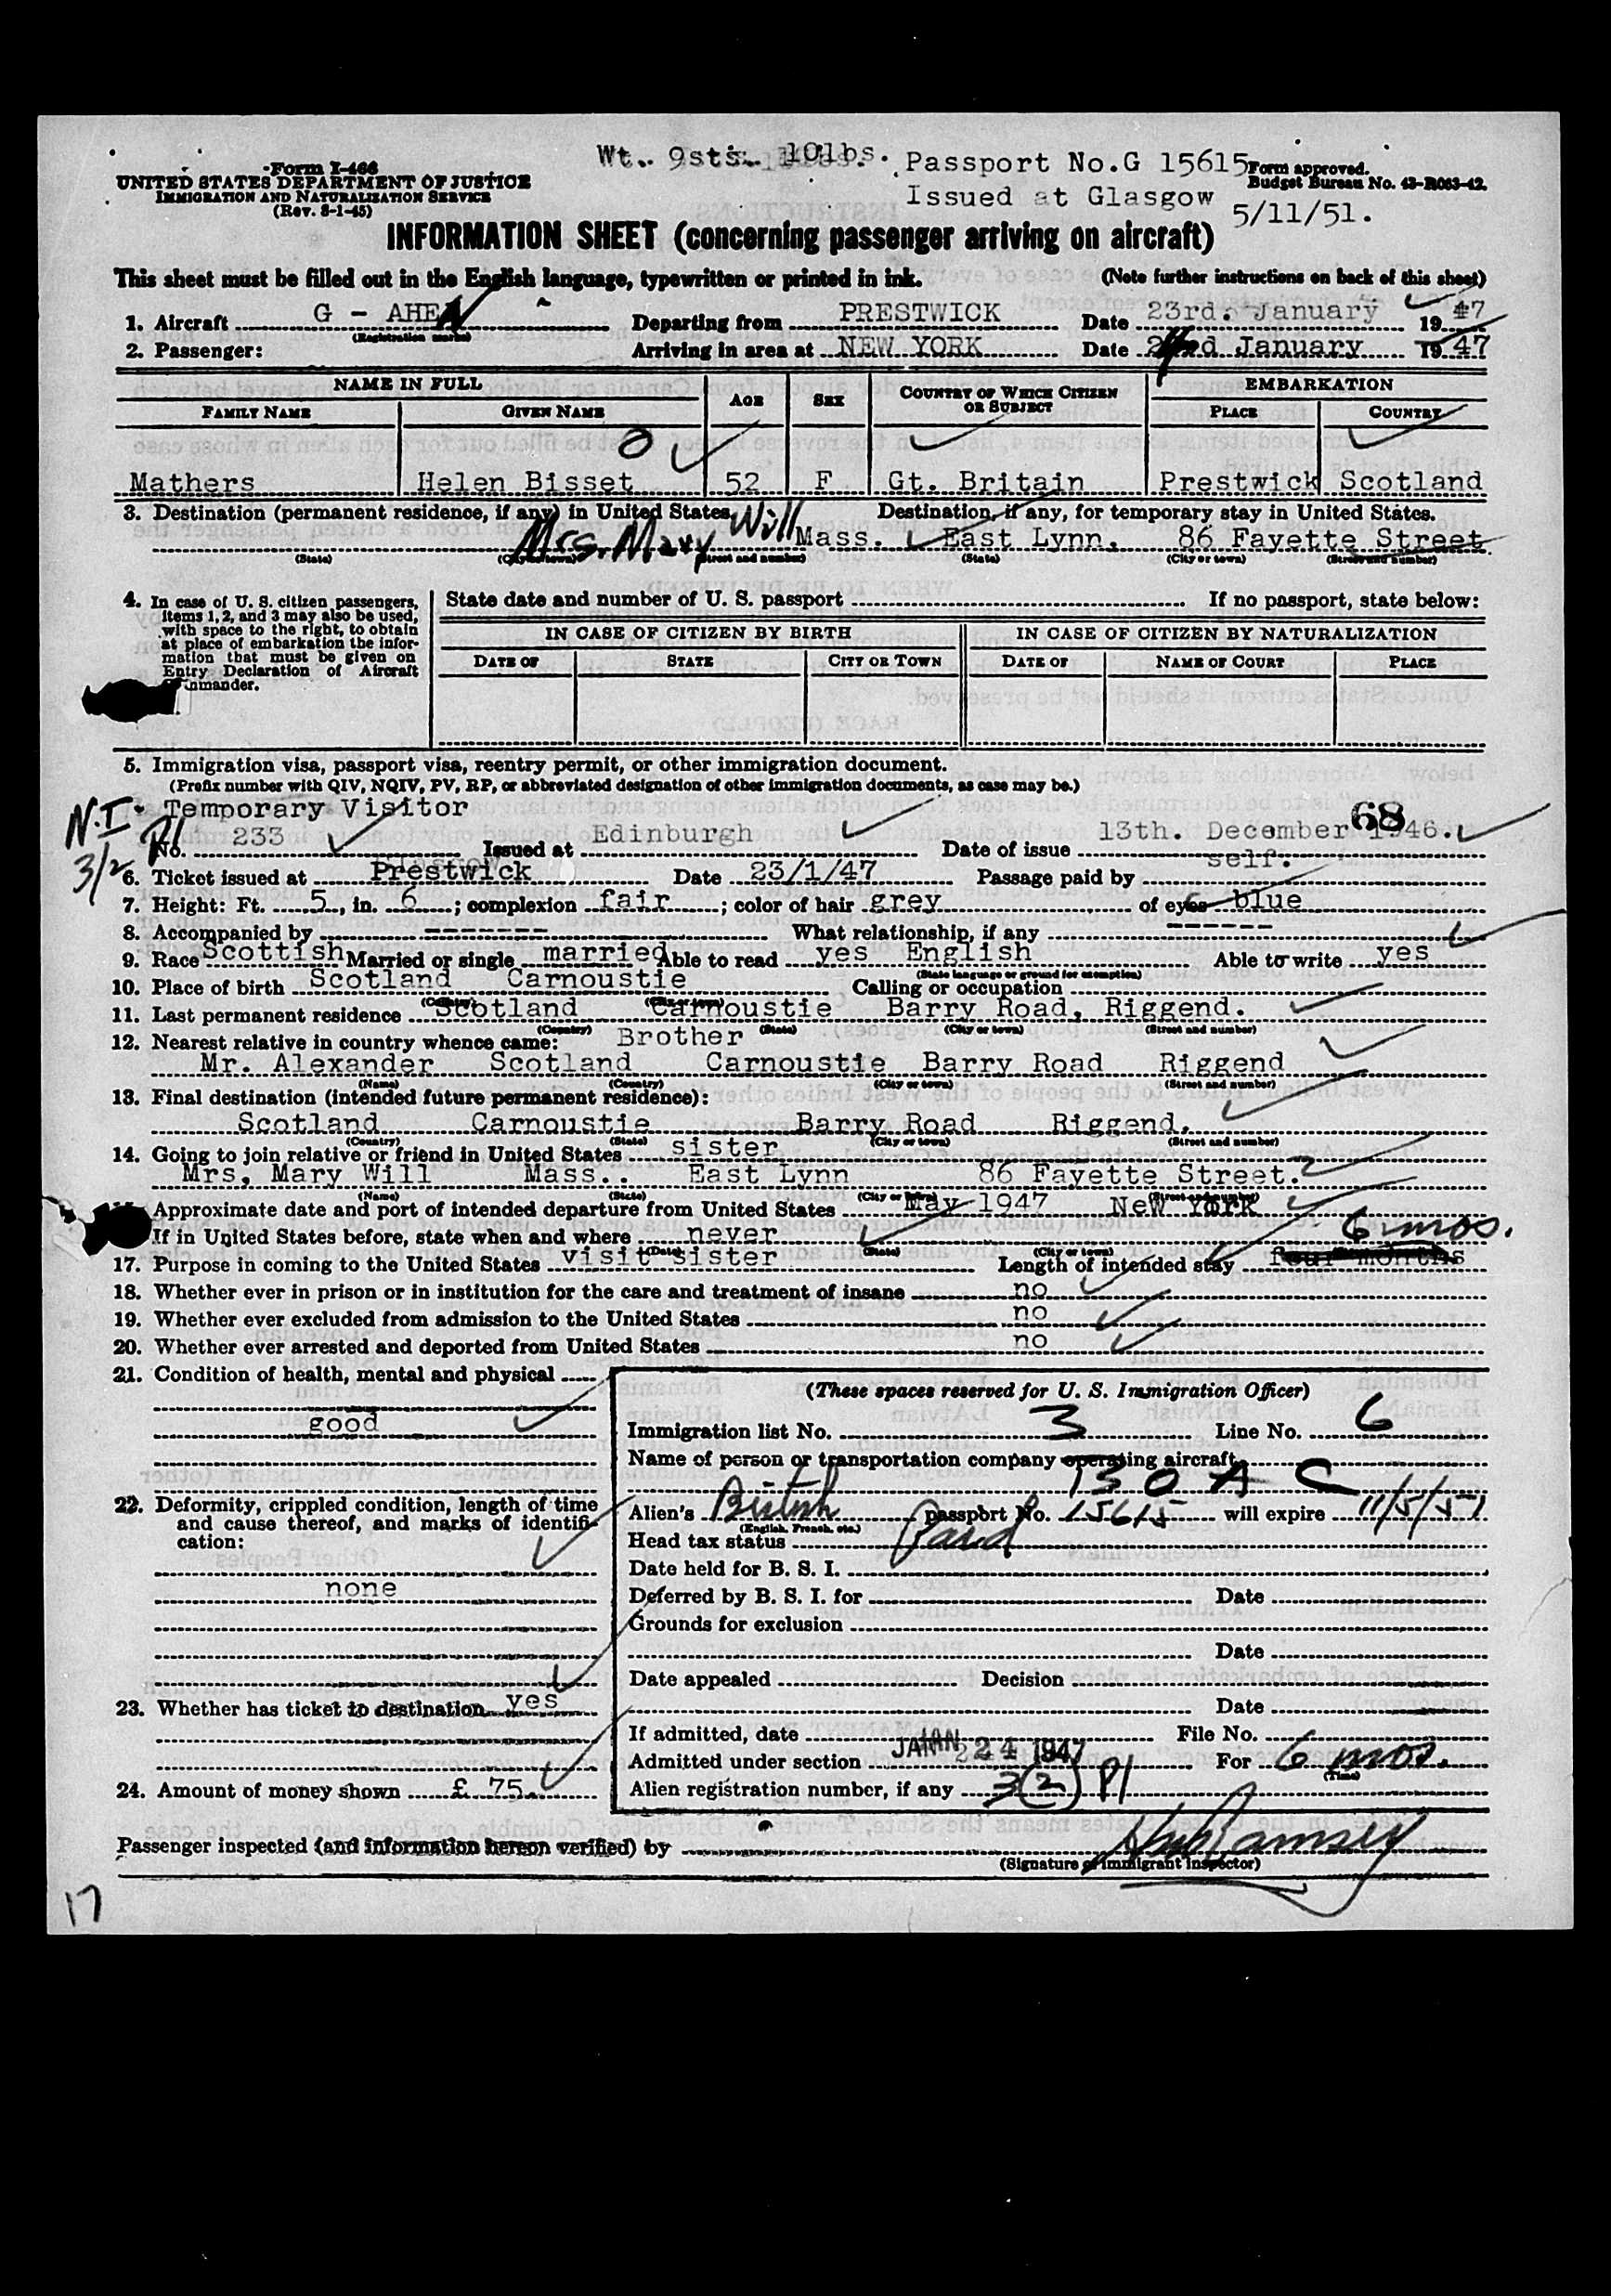 Wt. 9sts. 10lbs. Passport No.G 15615
Issued at Glasgow
5/11/51.
Form I-466
UNITED STATES DEPARTMENT OF JUSTICE
IMMIGRATION AND NATURALIZATION SERVICE
(Rev. 8-1-45)
Form approved.
Budget Bureau No. 43-R063-42.
INFORMATION SHEET (concerning passenger arriving on aircraft)
This sheet must be filled out in the English language, typewritten or printed in ink. (Note further instructions on back of this sheet)
1. Aircraft G - AHEN Departing from PRESTWICK Date 23rd. January 1947
(Registration marks)
2. Passenger: Arriving in area at NEW YORK Date 24rd January 1947
NAME IN FULL AGE SEX COUNTRY OF WHICH CITIZEN OR SUBJECT EMBARKATION
FAMILY NAME GIVEN NAME PLACE COUNTRY
Mathers Helen Bisset 52 F Gt. Britain Prestwick Scotland
3. Destination (permanent residence, if any) in United States. Destination, if any, for temporary stay in United States.
Mrs. Mary Will Mass. East Lynn. 86 Fayette Street
(State) (City or town) (Street and number) (State) (City or town) (Street and number)
4. In case of U. S. citizen passengers, items 1, 2, and 3 may also be used, with space to the right, to obtain at place of embarkation the information that must be given on Entry Declaration of Aircraft
State date and number of U. S. passport If no passport, state below:
IN CASE OF CITIZEN BY BIRTH IN CASE OF CITIZEN BY NATURALIZATION
DATE OF STATE CITY OR TOWN DATE OF NAME OF COURT PLACE
5. Immigration visa, passport visa, reentry permit, or other immigration document.
(Prefix number with QIV, NQIV, PV, RP, or abbreviated designation of other immigration documents, as case may be.)
N.I. Temporary Visitor 68
3/2 P1 No. 233 Issued at Edinburgh Date of issue 13th. December 1946.
6. Ticket issued at Prestwick Date 23/1/47 Passage paid by self.
7. Height: Ft. 5, in. 6; complexion fair; color of hair grey of eyes blue
8. Accompanied by ------- What relationship, if any ------
9. Race Scottish Married or single married Able to read yes English Able to write yes
(State language or ground for exemption)
10. Place of birth Scotland Carnoustie Calling or occupation
(Country) (City or town)
11. Last permanent residence Scotland Carnoustie Barry Road, Riggend.
(Country) (State) (City or town) (Street and number)
12. Nearest relative in country whence came: Brother
Mr. Alexander Scotland Carnoustie Barry Road Riggend
(Name) (Country) (City or town) (Street and number)
13. Final destination (intended future permanent residence):
Scotland Carnoustie Barry Road Riggend.
(Country) (State) (City or town) (Street and number)
14. Going to join relative or friend in United States sister
Mrs. Mary Will Mass.. East Lynn 86 Fayette Street.
(Name) (State) (City or town) (Street and number)
Approximate date and port of intended departure from United States May 1947 New York
If in United States before, state when and where never 6 mos.
(Date) (State) (City or town)
17. Purpose in coming to the United States visit sister Length of intended stay four months
18. Whether ever in prison or in institution for the care and treatment of insane no
19. Whether ever excluded from admission to the United States no
20. Whether ever arrested and deported from United States no
21. Condition of health, mental and physical
good
22. Deformity, crippled condition, length of time and cause thereof, and marks of identification:
none
23. Whether has ticket to destination yes
24. Amount of money shown £ 75.
(These spaces reserved for U. S. Immigration Officer)
Immigration list No. 3 Line No. 6
Name of person or transportation company operating aircraft
B O A C
Alien's British passport No. 15615 will expire 11/5/51
(English, French, etc.)
Head tax status Paid
Date held for B. S. I.
Deferred by B. S. I. for Date
Grounds for exclusion
Date
Date appealed Decision
Date
If admitted, date JAN 24 1947 File No.
Admitted under section 3(2) P1 For 6 mos.
(Time)
Alien registration number, if any
Passenger inspected (and information hereon verified) by
(Signature of Immigrant Inspector)
17